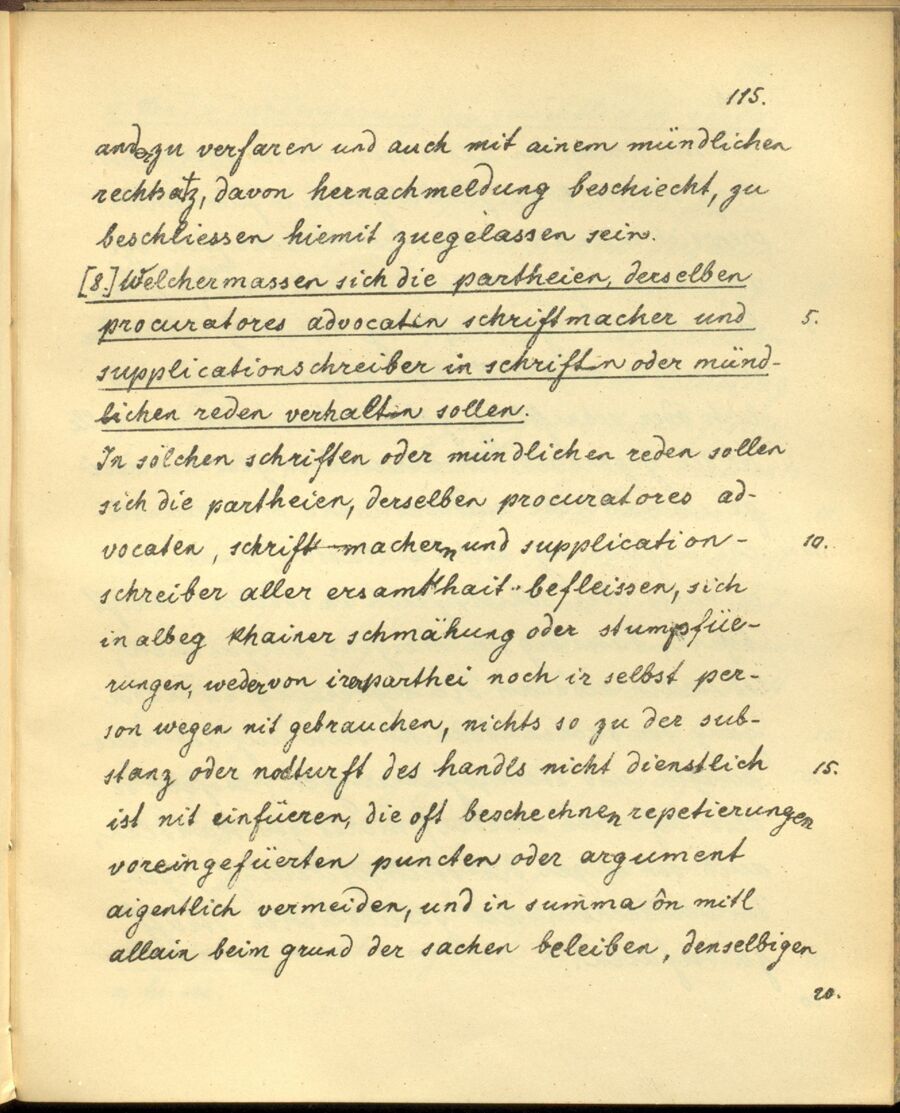 115.
ander zu verfaren und auch mit ainem mündlichen
rechtsatz, davon hernach meldung beschiecht, zu
beschliessen hiemit zuegelassen sein.
[8.] Welchermassen sich die partheien, derselben
procuratores advocaten schriftmacher und 5.
supplicationschreiber in schriften oder münd-
lichen reden verhalten sollen.
In solchen schriften oder mündlichen reden sollen
sich die partheien, derselben procuratores ad-
vocaten, schriftmachern und supplication- 10.
schreiber aller ersamkhait befleissen, sich
in albeg khainer schmähung oder stumpfüe-
rungen, weder von irer parthei noch ir selbst per-
son wegen nit gebrauchen, nichts so zu der sub-
stanz oder notturft des handls nicht dienstlich 15.
ist nit einfüeren, die oft beschechnen repetierungen
voreingefüerten puncten oder argument
aigentlich vermeiden, und in summa ôn mitl
allain beim grund der sachen beleiben, denselbigen
20.